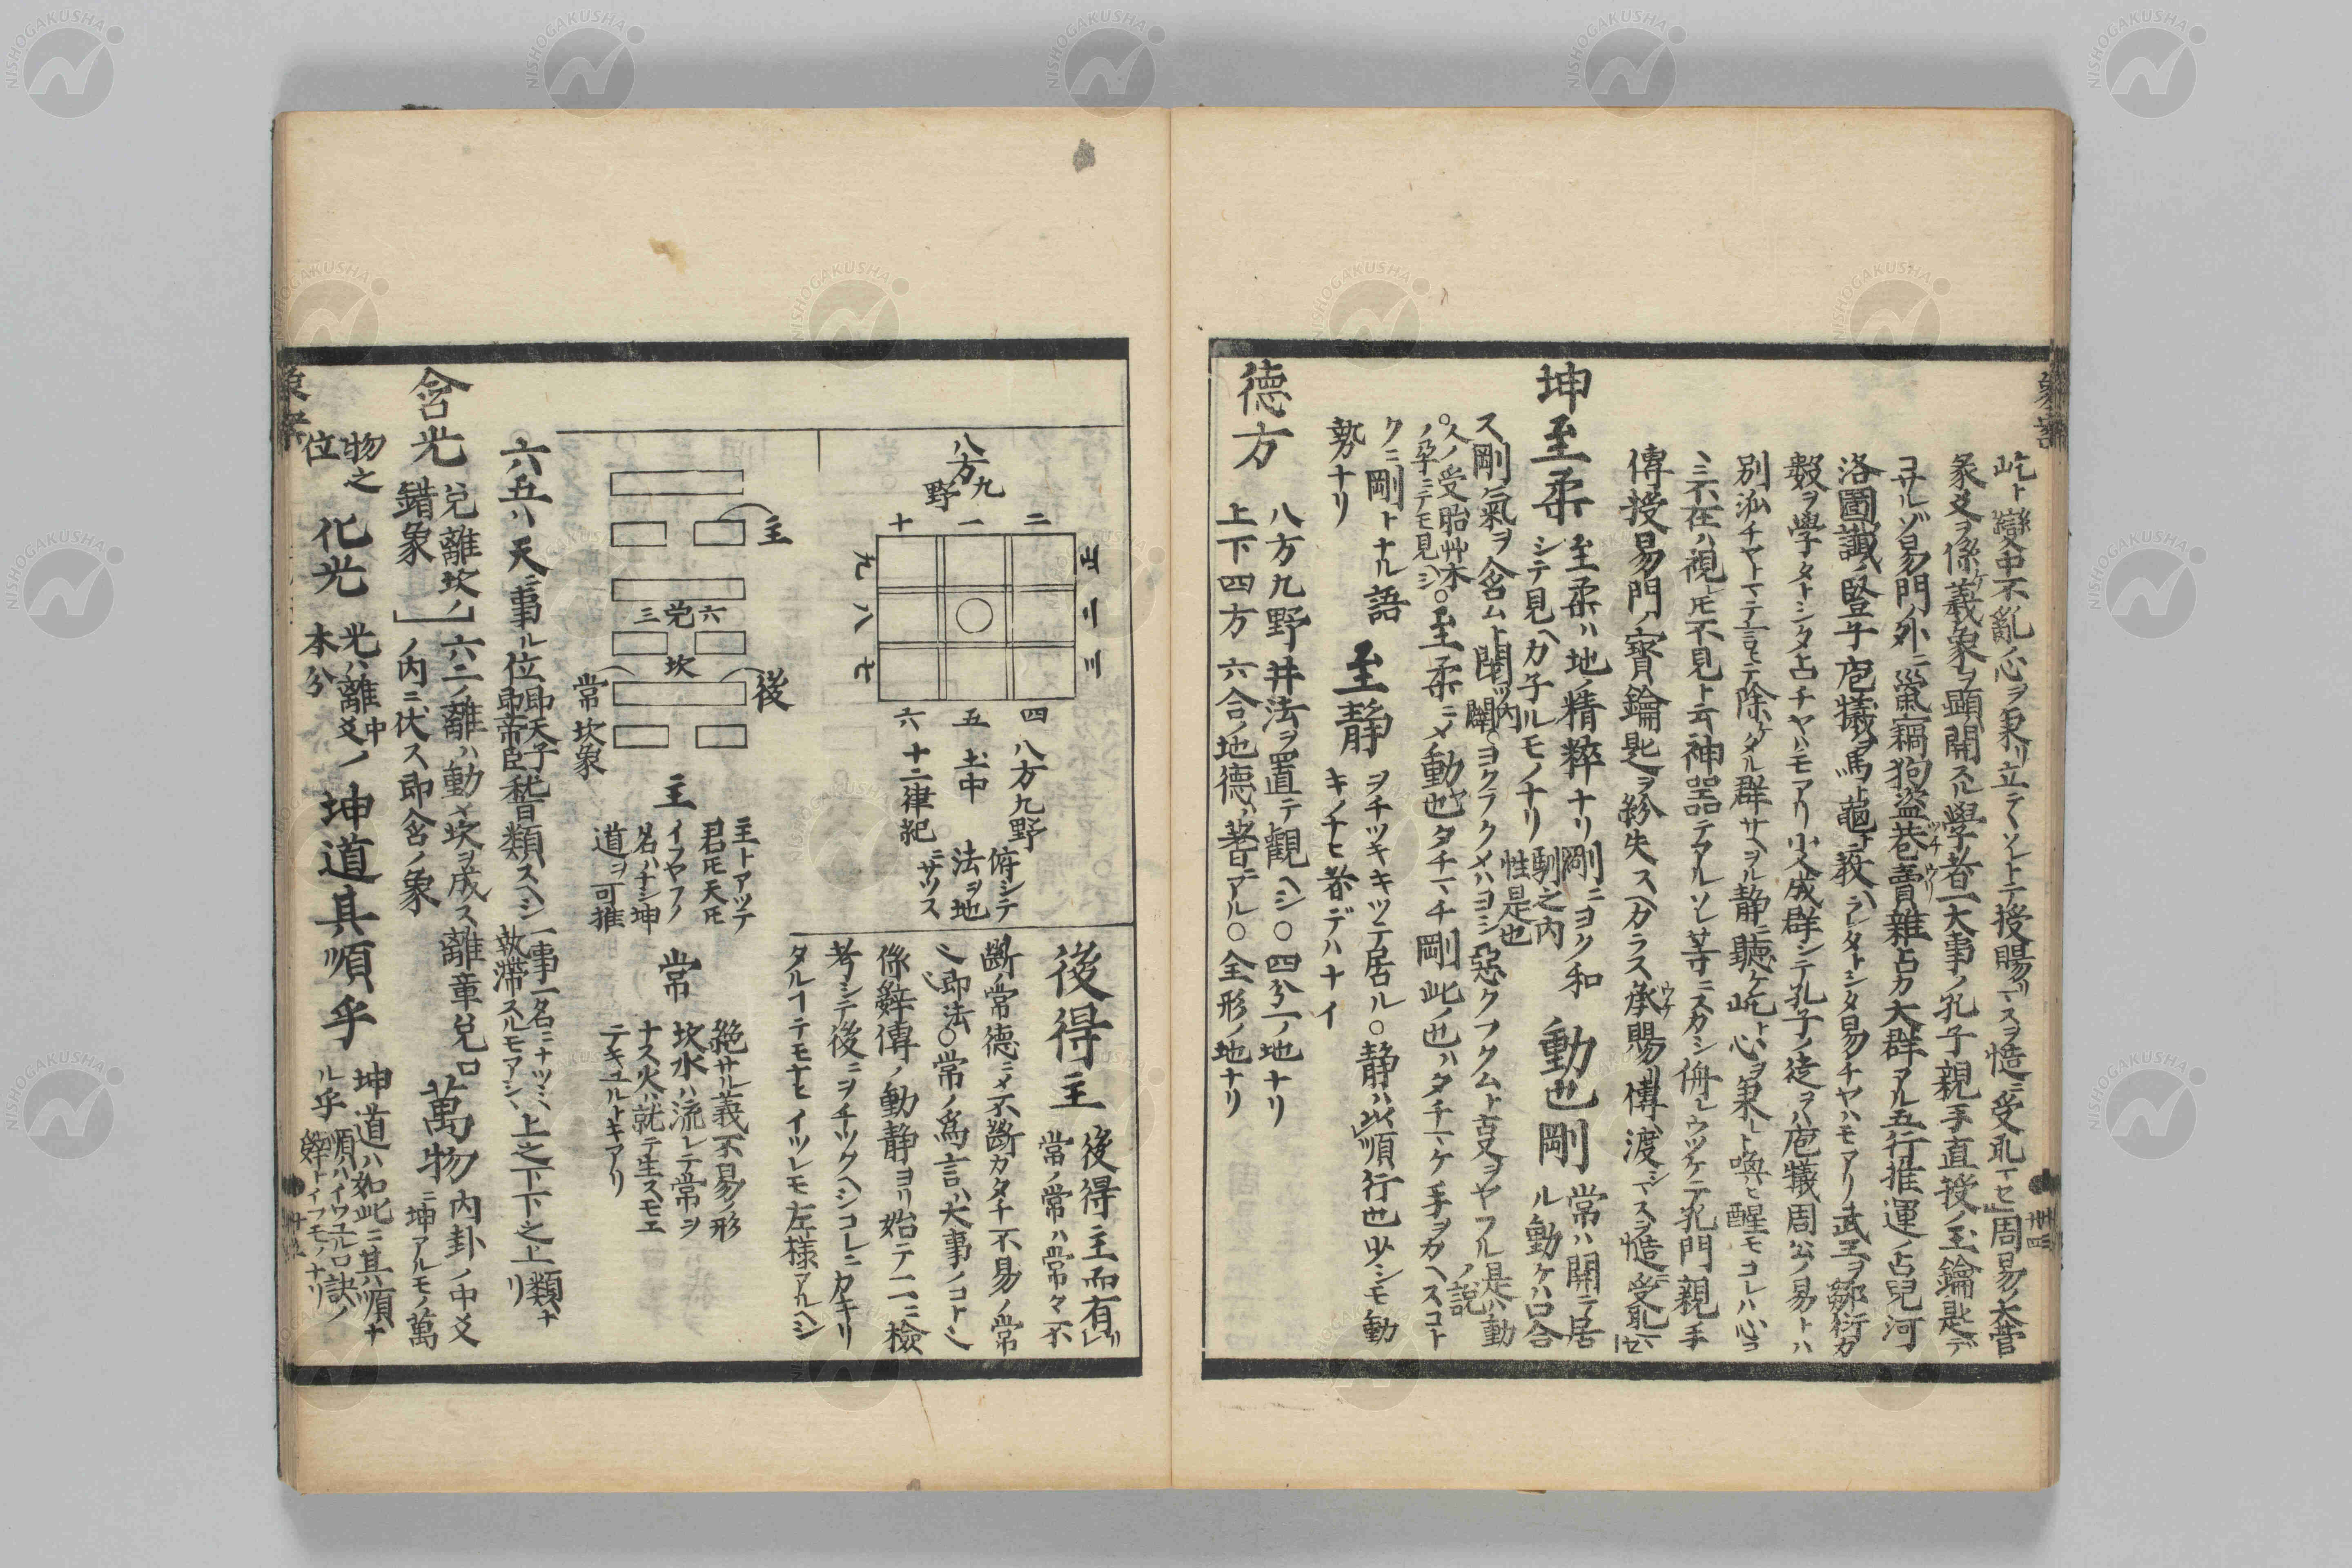 屹ト變中不亂心ヲ秉リ立テヽソレトテ授賜マスヲ慥ニ受乢マセ」周易ノ大菅
彖爻ヲ係ケ義象ヲ顯開スル學者一大事ノ孔子親手直授ノ玉鑰匙デ
コサルゾ易門ノ外ニ鼠竊狗盗巷賣雜占カ大群アル五行推運ノ占兒河
洛圖讖ノ豎子庖犧ヲ馬ト龜ニ
數ヲ學タトシタ占チヤハモアリ小人成群シテ孔子ノ徒ヲハ庖犧周公ノ易トハ
別派チヤトマテ言モテ除ケタル群サヘヲル静ニ聽ケ屹ト心ヲ秉レト喚ヒ醒モコレハ心コ
ヽニ不在ハ視レ𪜈不見ト云神器テアルソレ等ニスカシ侮レウツケテ孔門親手
傳授易門ノ寳鑰匙ヲ紛失スヘカラス承賜リ傳ヘ渡シマスヲ慥ニ受乢マセ
坤至柔 至柔ハ地ノ精粹ナリ剛ニヨク和
シテ見ヘカ子ルモノナリ馴之内性是也
動也剛 常ハ開テ居
ル動ケハ口合
ス剛氣ヲ含ムト闔ツ内闢ヨクラクメハヨシ惡クフクムト舌又ヲヤフル是ハ動ノ説
○人ノ受胎艸木ノ孕ニテモ見ヘシ○至柔ニメ動也タチマチ剛此ノ也ハタチマケ手ヲカヘスコト
クニ剛トナル語 至静 ヲチツキキツテ居ル○静ハ此順行也少シモ動
勢ナリ キノナヒ者デハナイ
德方 八方九野井法ヲ置テ觀ヘシ○四分一ノ地ナリ
上下四方六合ノ地德ハ著ニアル○全形ノ地ナリ
八方九野
十 一 二
九 八 七
六 五 四
土中
八方九野
十二律紀
俯シテ
法ヲ地
ニサツス
後得主 後得主而有」
常ノ常ハ常々不
斷ノ常德ニメ不斷カタチ不易ノ常
ヘ即法○常ノ爲言ハ大事ノコトヘ
係辭傳ノ動静ヨリ始テ一二檢
考シテ後ニヲチツクヘシコレニカキリ
タルコテモナヒイツレモ左様アルヘシ
主
三兌六
坎
後
常坎象
主 主トアツテ
君𪜈天𪜈
イフヤフノ
名ハナシ坤
道ヲ可推
常 絶サル義不易ノ形
坎水ハ流レテ常ヲ
ナス火ハ就テ生スモエ
テキユルトキアリ
六五ハ天ニ事ル位即天子即帝臣替類スヘシ一事一名ニナツミ執滯スルモアシヽ上之下下之上類ナリ
含光 兌離坎ノ錯象」六二ノ離ハ動メ坎ヲ成ス離章兌口
ノ内ニ伏ス即含ノ象
萬物 内卦ノ中爻
ニ坤アルモノ萬
物之
位
化光 光ハ離中爻ノ
本分
坤道其順乎 坤道ハ如此ニ其ハ順ナ
ル乎順ハイワユル口訣ノ
辭トイフモノナリ